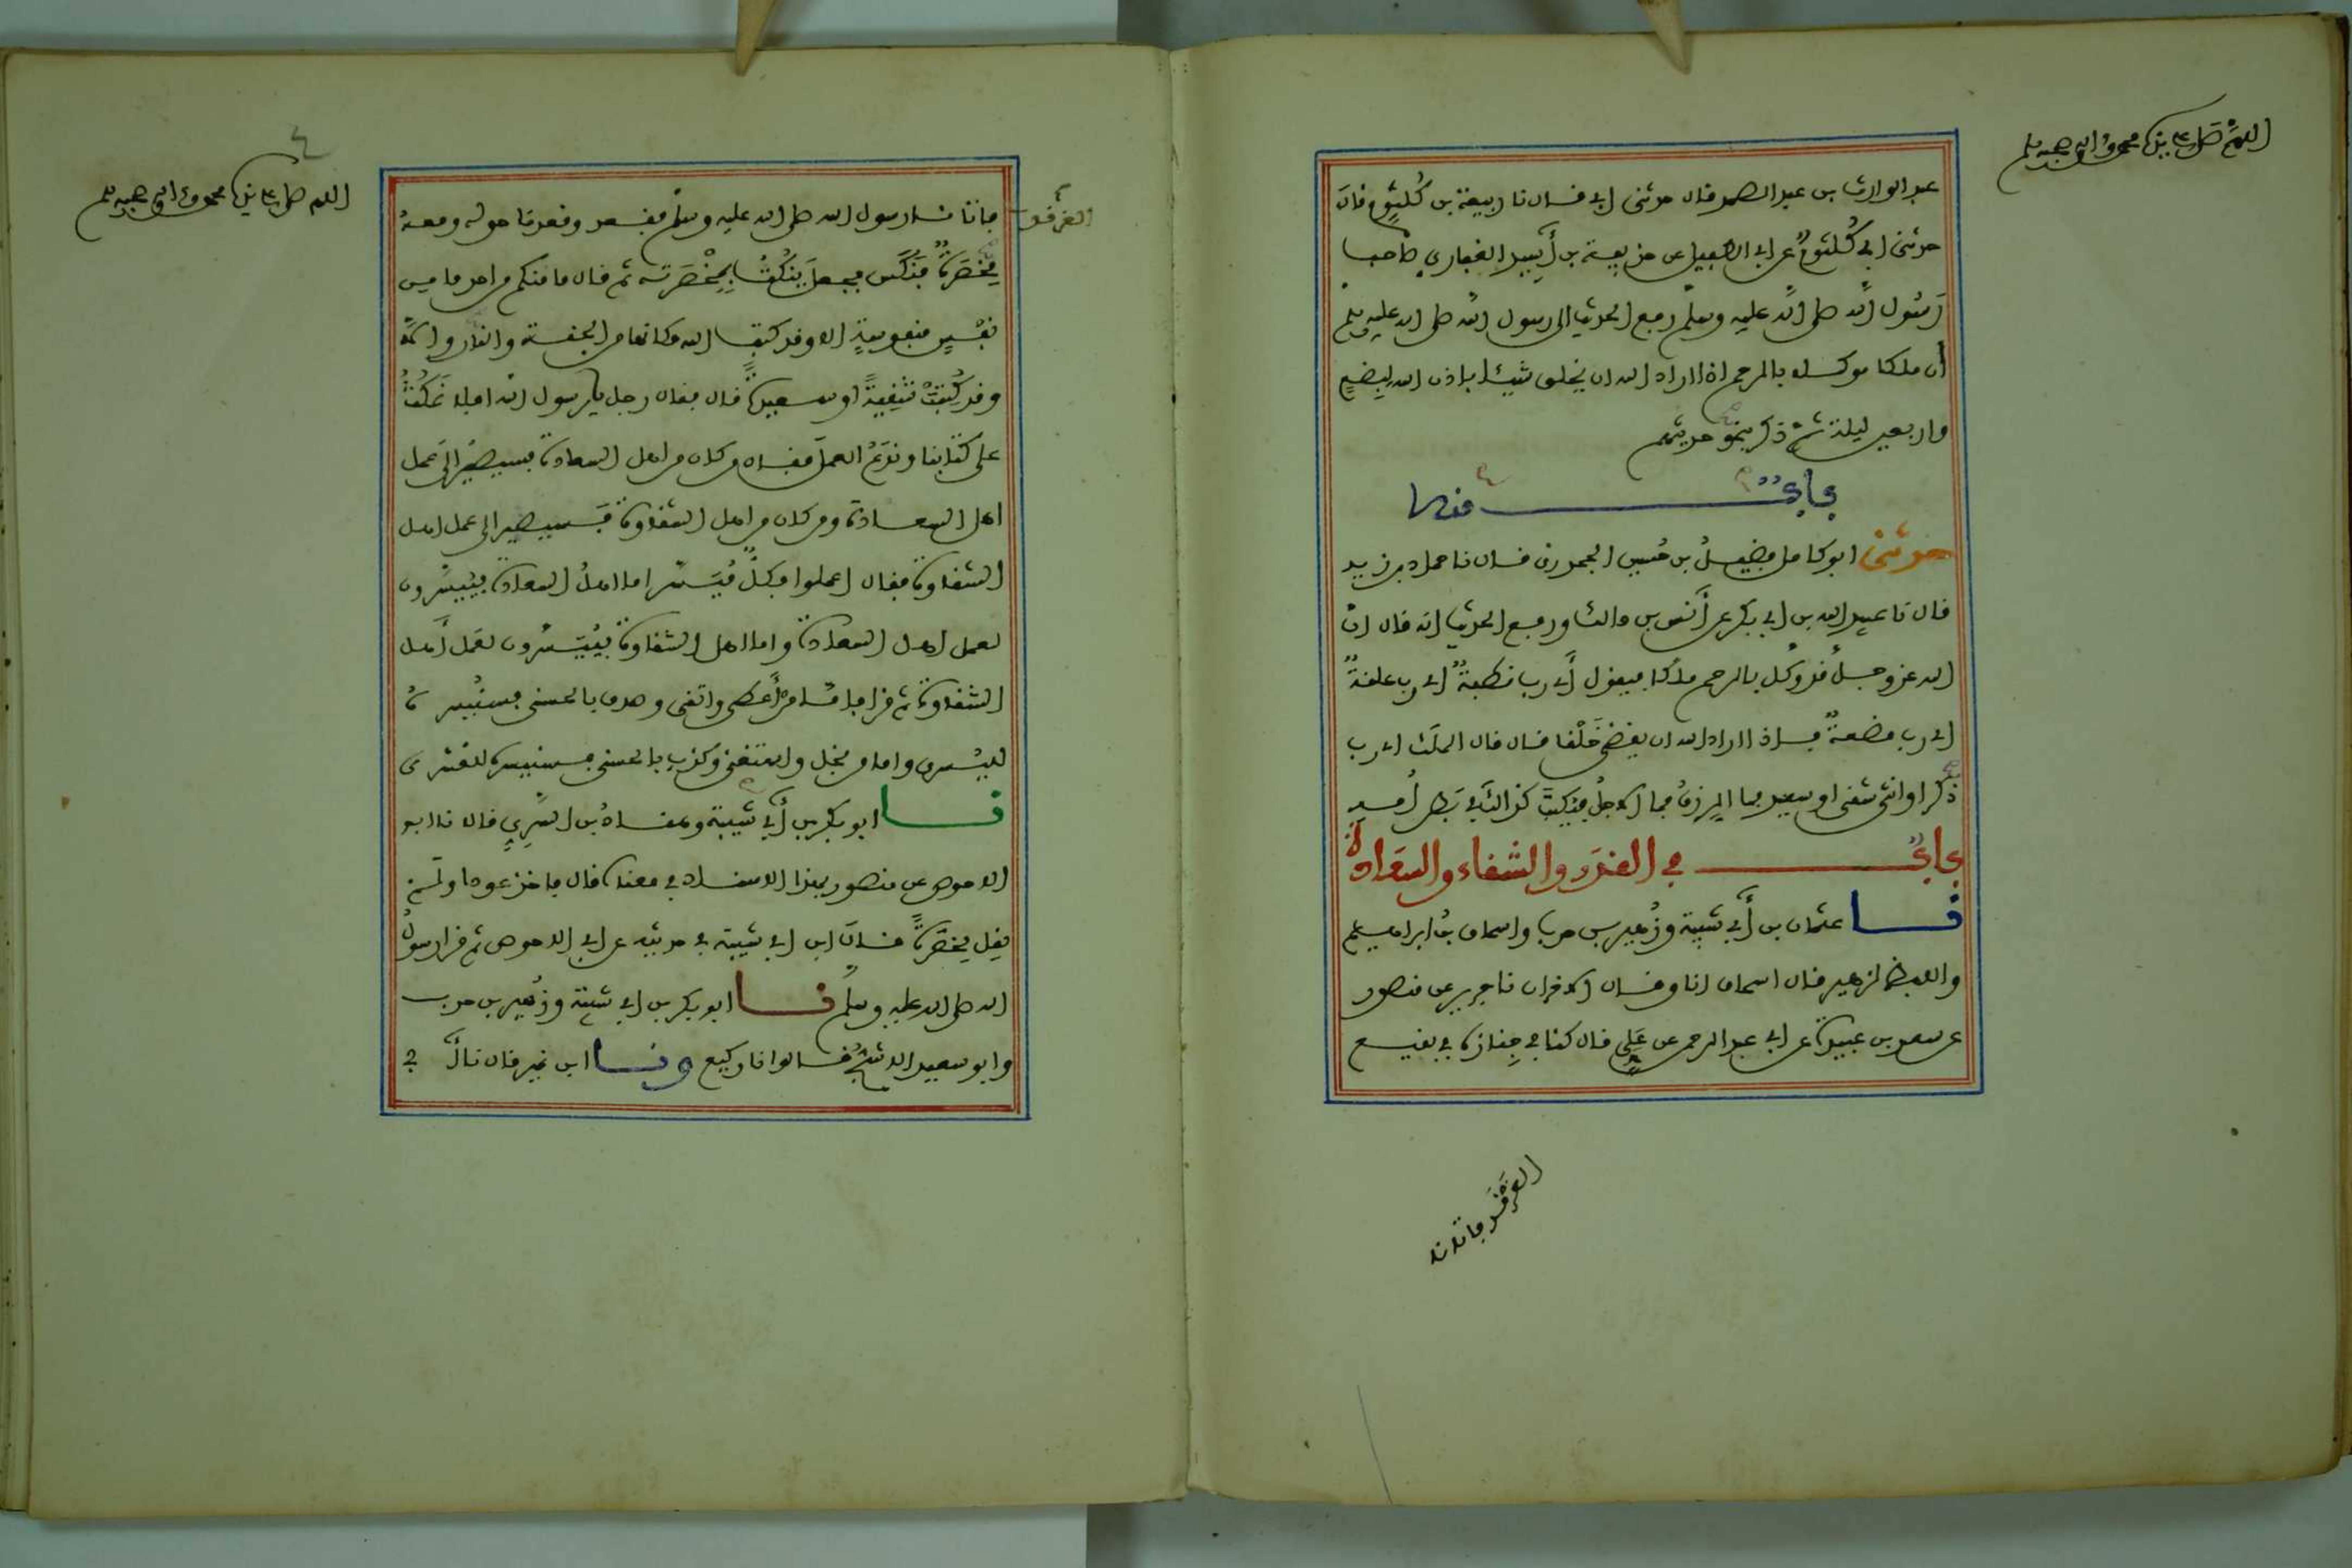 اللهم صل على نبينا محمد وآله وصحبه وسلم
عبد الوارث بن عبد الصمد قال حدثني ابي قال نا ربيعة بن كُلثومٍ قال
حدثني ابي كُلثومٌ عن ابي الطفيل عن حذيفة بن أَسِيد الغفاري صاحب
رَسُول الله صلى الله عليه وسلم رفع الحديث الى رسول الله صلى الله عليه وسلم
أن ملكا موكلا بالرحم اذا اراد الله ان يخلق شيئا باذن الله لِبِضعٍ
واربعين ليلة ثم ذكر نحو حديثهم
بابٌ منه
حدثني ابو كامل فضيلُ بن حُسين الجحدري قال نا حماد بن زيد
قال نا عبيد الله بن ابي بكر عن أنس بن مالك ورفع الحديث انه قال انّ
الله عز وجلّ قد وكّل بالرحم ملكا فيقول أي رب نطفةٌ اي رب علقةٌ
اي رب مضغةٌ فاذا اراد الله ان يقضي خَلْقا قال قال الملَك اي رب
ذكر او انثى شقي او سعيد فما الرزقُ فما الاجلُ فيكتبُ كذلك في بطن اُمه
بابٌ في القدَر والشقاء والسعادة
نا عثمان بن أبي شيبة وزُهير بن حرب واسحاق بن ابراهيم
واللفظ لزهير قال اسحاق انا وقال الاخران نا جرير عن منصور
عن سعد بن عبيدة عن ابي عبد الرحمن عن عَلِي قال كنا في جنازة في بقيع
الغرقد فاتانا
اللهم صل على نبينا محمد وآله وصحبه وسلم
الغرقد
فاتانا رسول الله صلى الله عليه وسلم فقعد وقعدنا حوله ومعه
مِخْصَرةٌ فنكَّس فجعل يَنكُتُ بِمِخْصَرته ثم قال ما منكم من احد ما من
نفْسٍ منفوسةٍ الا وقد كتب الله مكانها من الجنة والنار والا
وقد كُتِبَتْ شقِيةً او سعيدةً قال فقال رجل يا رسول الله افلا نمكُثُ
على كتابنا وندَعُ العمل فقال من كان من اهل السعادة فسيصيرُ الى عمل
اهل السعادة ومن كان من اهل الشقاوة فسيصير الى عمل اهل
الشقاوة فقال اعملوا فكلٌّ مُيَسَّر اما اهلُ السعادة فيُيسَّرون
لعمل اهل السعادة واما اهل الشقاوة فيُيَسَّرون لعمل أهل
الشقاوة ثم قرا فاما من أَعطى واتقى وصدق بالحسنى فسنُيسره
لليُسرى واما من بخل واستغنى وكذب بالحسنى فسنيسره للعسرى
نا ابو بكر بن أبي شيبة وهناد بن السَّرِي قالا نا ابو
الاحوص عن منصور بهذا الاسناد في معناه قال فاخذ عودا ولم
يقل مِخصَرةً قال ابن ابي شيبة في حديثه عن ابي الاحوص ثم قرا رسول
الله صلى الله عليه وسلم نا ابو بكر بن ابي شيبة وزُهير بن حرب
وابو سعيد الاشجُّ قالوا نا وكيع ونا ابن نمير قال نا أبي